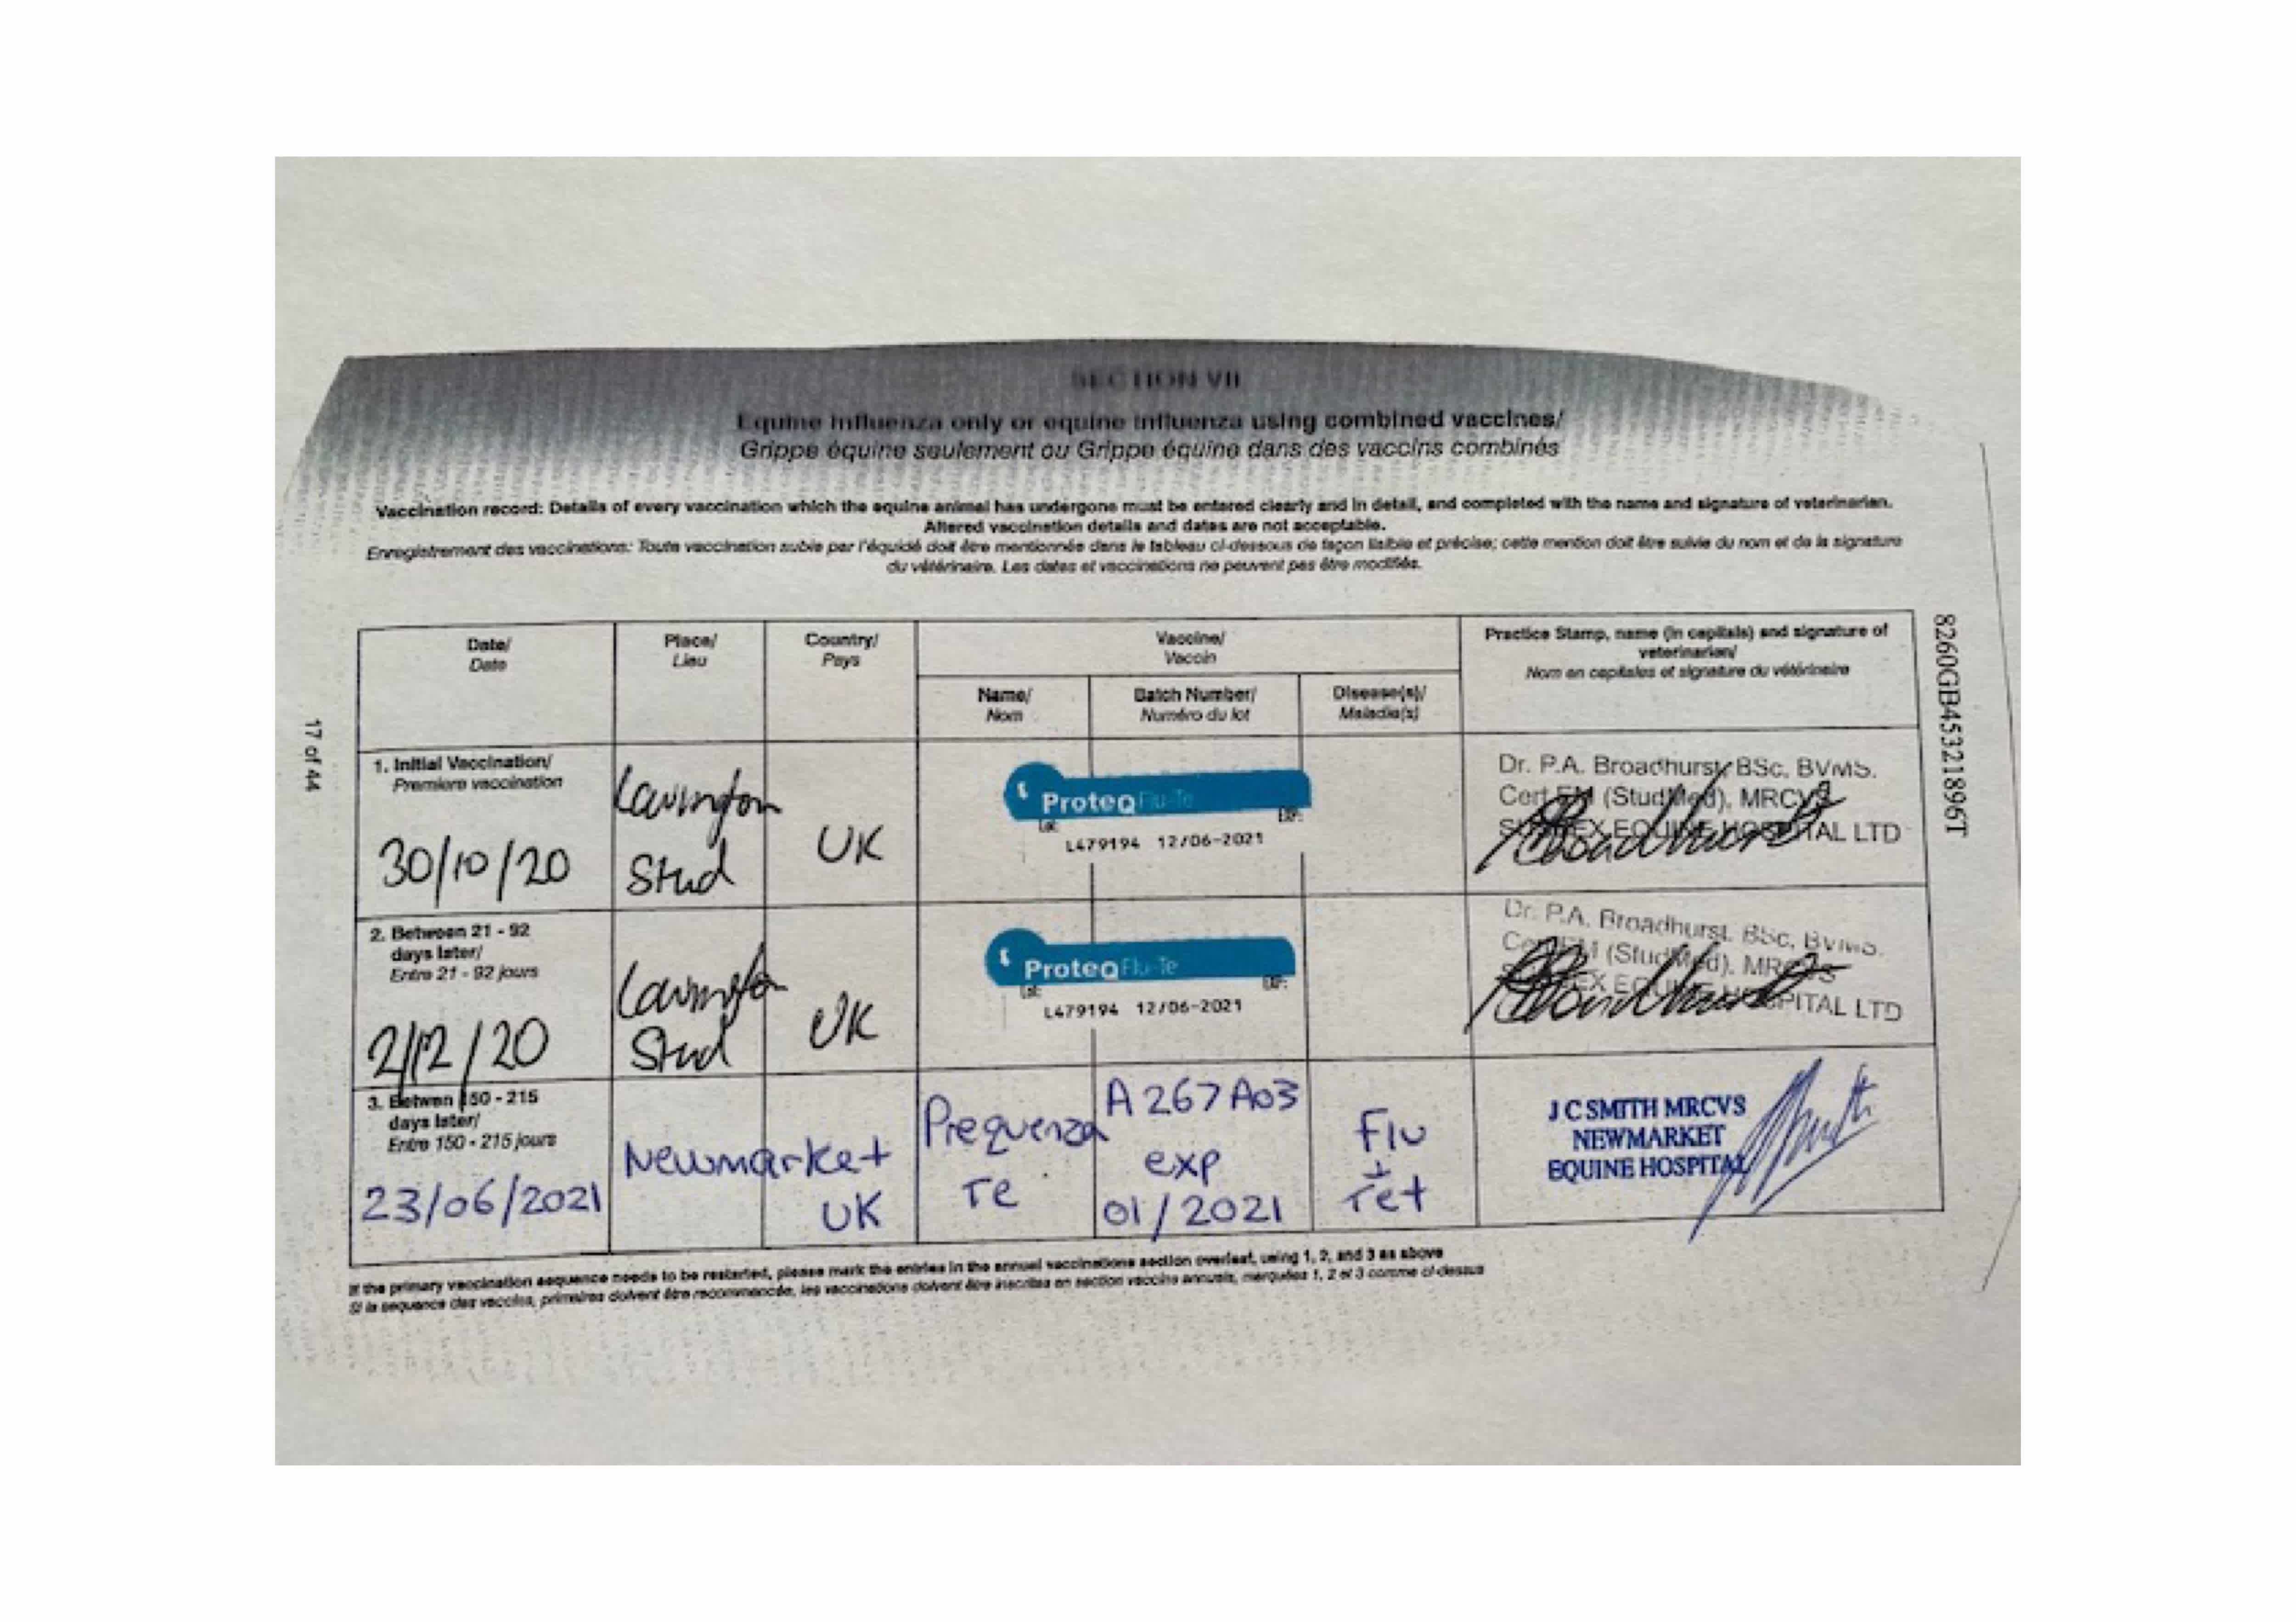 SECTION VII
Equine influenza only or equine influenza using combined vaccines/
Grippe équine seulement ou Grippe équine dans des vaccins combinés
Vaccination record: Details of every vaccination which the equine animal has undergone must be entered clearly and in detail, and completed with the name and signature of veterinarian.
Altered vaccination details and dates are not acceptable.
Enregistrement des vaccinations: Toute vaccination subie par l'équidé doit être mentionnée dans le tableau ci-dessous de façon lisible et précise; cette mention doit être suivie du nom et de la signature
du vétérinaire. Les dates et vaccinations ne peuvent pas être modifiés.
Date/
Date
Place/
Lieu
Country/
Pays
Vaccine/
Vaccin
Name/
Nom
Batch Number/
Numéro du lot
Disease(s)/
Maladie(s)
Practice Stamp, name (in capitals) and signature of
veterinarian/
Nom en capitales et signature du vétérinaire
1. Initial Vaccination/
Premiere vaccination
30/10/20
Lavington
Stud
UK
ProteqFlu-Te
Lot:
EXP:
L479194 12/06-2021
Dr. P.A. Broadhurst, BSc, BVMS.
Cert EM (StudMed), MRCVS
SUSSEX EQUINE HOSPITAL LTD
2. Between 21 - 92
days later/
Entre 21 - 92 jours
2/12/20
Lavington
Stud
UK
ProteqFlu-Te
Lot:
EXP:
L479194 12/06-2021
Dr. P.A. Broadhurst, BSc, BVMS.
Cert EM (StudMed), MRCVS
SUSSEX EQUINE HOSPITAL LTD
3. Betwen 150 - 215
days later/
Entre 150 - 215 jours
23/06/2021
Newmarket
UK
Prequenza
Te
A267A03
exp
01/2021
Flu
+
Tet
J C SMITH MRCVS
NEWMARKET
EQUINE HOSPITAL
If the primary vaccination sequence needs to be restarted, please mark the entries in the annual vaccinations section overleaf, using 1, 2, and 3 as above
Si la sequence des vaccins, primaires doivent être recommencée, les vaccinations doivent être inscrites en section vaccins annuels, marquées 1, 2 et 3 comme ci-dessus
17 of 44
8260GB45321896T